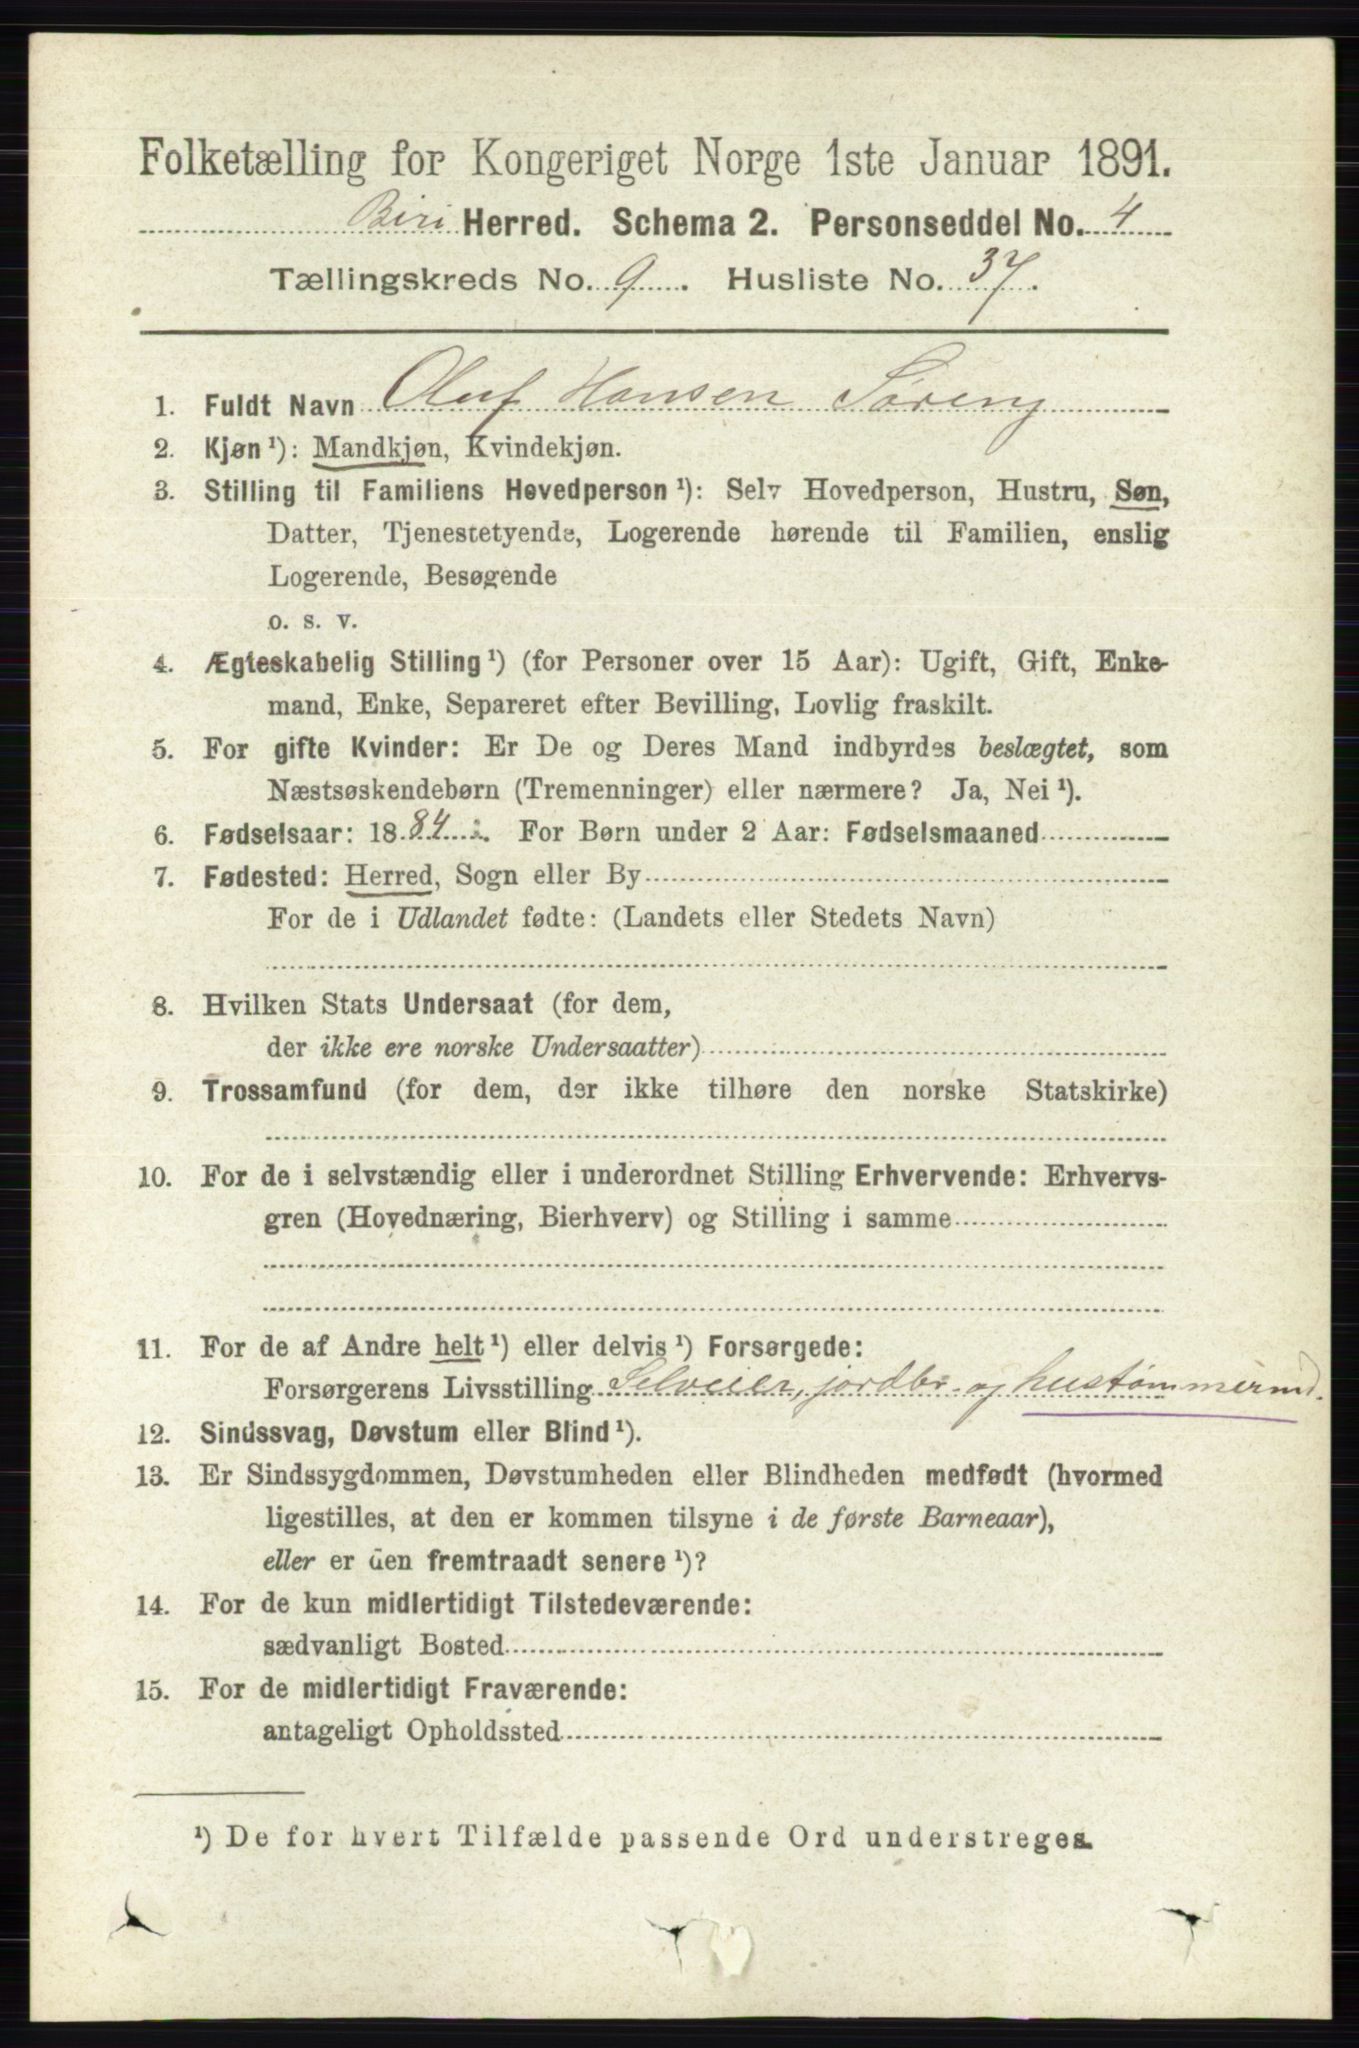 Folketælling for Kongeriget Norge 1ste Januar 1891.
Biri Herred. Schema 2. Personseddel No. 4
Tællingskreds No. 9. Husliste No. 37.
1. Fuldt Navn Oluf Hansen Søreng
2. Kjøn ¹): Mandkjøn, Kvindekjøn.
3. Stilling til Familiens Hovedperson ¹): Selv Hovedperson, Hustru, Søn,
Datter, Tjenestetyende, Logerende hørende til Familien, enslig
Logerende, Besøgende
o. s. v.
4. Ægteskabelig Stilling ¹) (for Personer over 15 Aar): Ugift, Gift, Enke-
mand, Enke, Separeret efter Bevilling, Lovlig fraskilt.
5. For gifte Kvinder: Er De og Deres Mand indbyrdes beslægtet, som
Næstsøskendebørn (Tremenninger) eller nærmere? Ja, Nei ¹).
6. Fødselsaar: 1884. For Børn under 2 Aar: Fødselsmaaned
7. Fødested: Herred, Sogn eller By
For de i Udlandet fødte: (Landets eller Stedets Navn)
8. Hvilken Stats Undersaat (for dem,
der ikke ere norske Undersaatter)
9. Trossamfund (for dem, der ikke tilhøre den norske Statskirke)
10. For de i selvstændig eller i underordnet Stilling Erhvervende: Erhvervs-
gren (Hovednæring, Bierhverv) og Stilling i samme
11. For de af Andre helt ¹) eller delvis ¹) Forsørgede:
Forsørgerens Livsstilling Selveier, jordbr. og hustømmermd.
12. Sindssvag, Døvstum eller Blind ¹).
13. Er Sindssygdommen, Døvstumheden eller Blindheden medfødt (hvormed
ligestilles, at den er kommen tilsyne i de første Barneaar),
eller er den fremtraadt senere ¹)?
14. For de kun midlertidigt Tilstedeværende:
sædvanligt Bosted
15. For de midlertidigt Fraværende:
antageligt Opholdssted
¹) De for hvert Tilfælde passende Ord understreges.